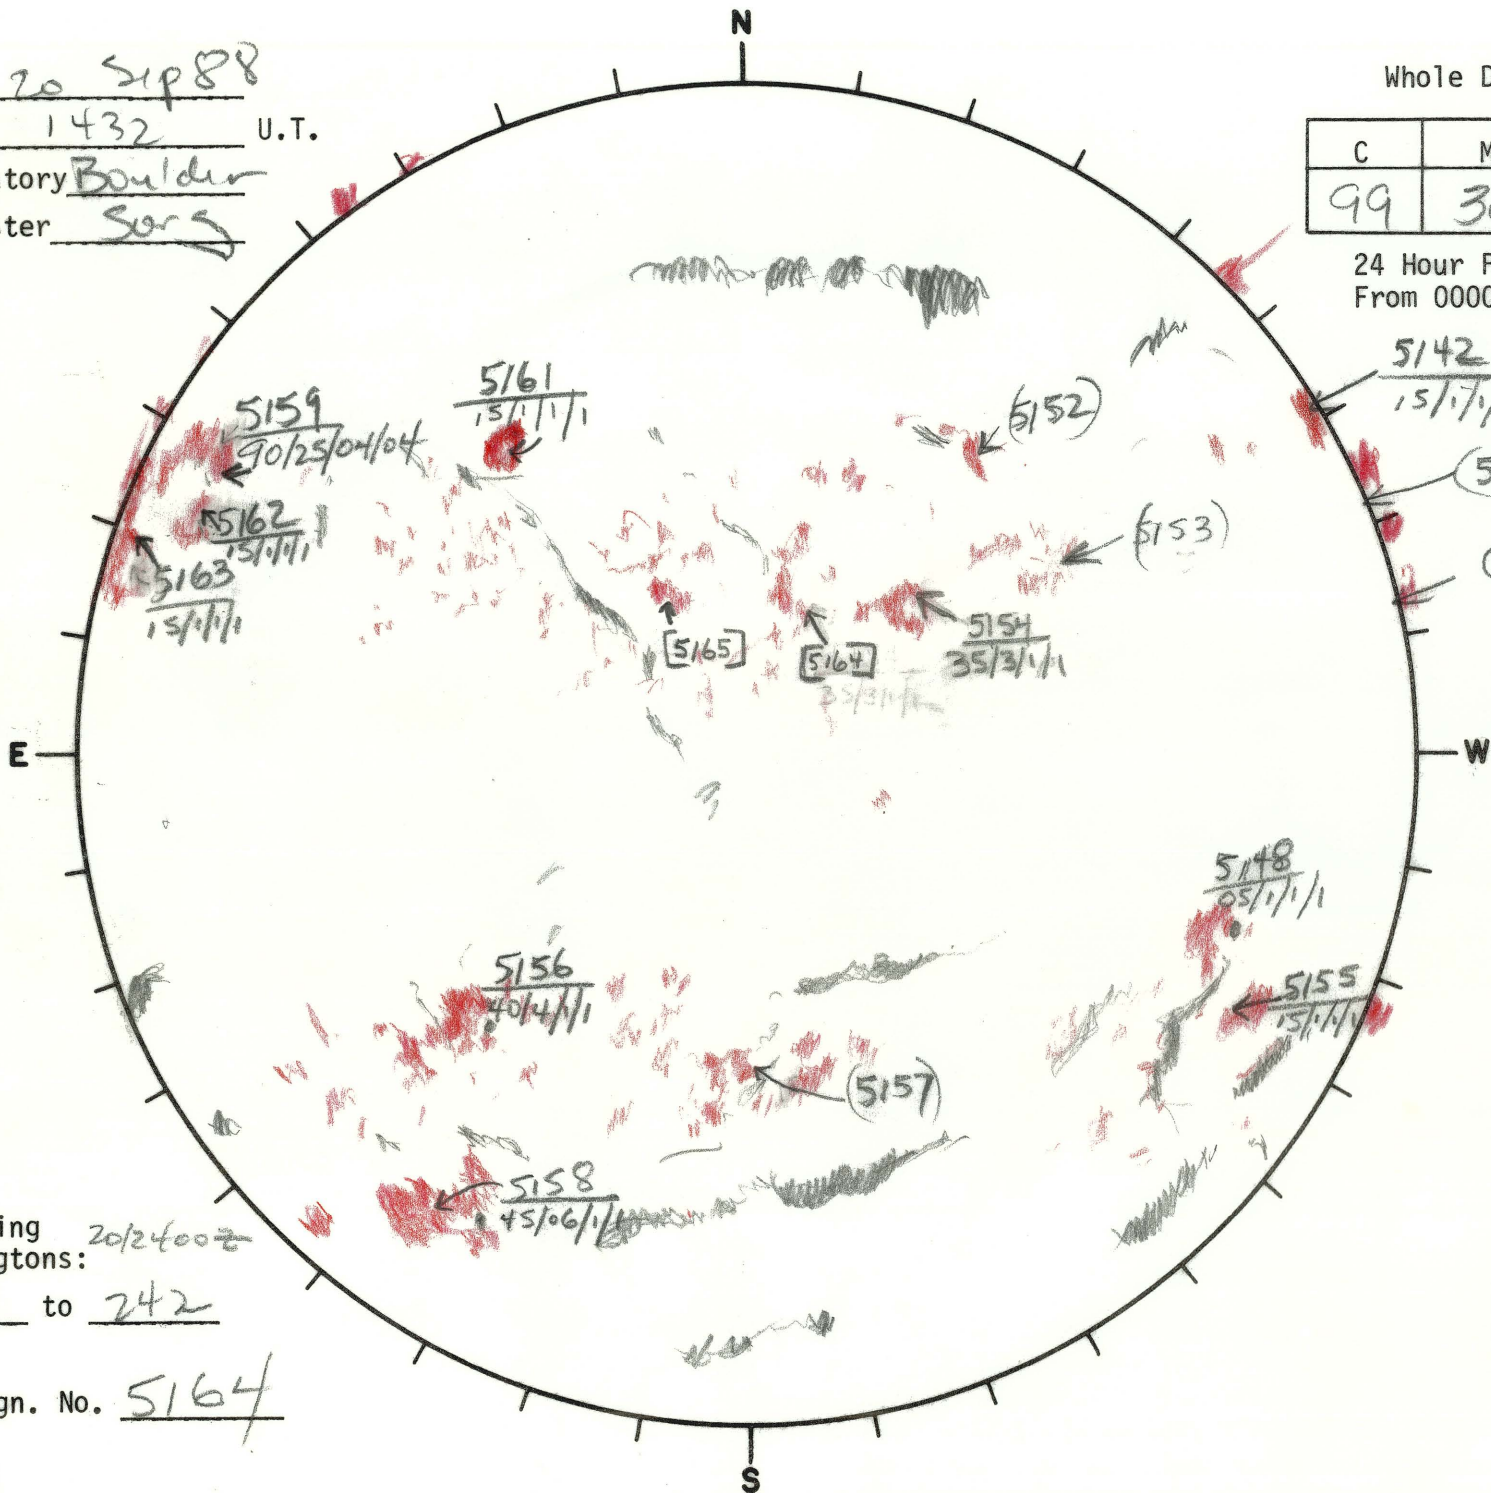 N
20 Sep 88
1432 U.T.
tory Boulder
ter
Whole D
C M
99 3
24 Hour F
From 0000
5142
15/1/1/
5161
15/1/1/1
5159
90/25/04/04
(5152)
(5
5162
15/1/1/1
(5153)
5163
15/1/1/1
(
[5165]
[5164]
35/3/1/1
5154
35/3/1/1
E
W
5148
05/1/1/1
5156
40/4/1/1
5155
15/1/1/1
(5157)
5158
45/06/1/1
ing
gtons: 20/2400z
to 242
gn. No. 5164
S